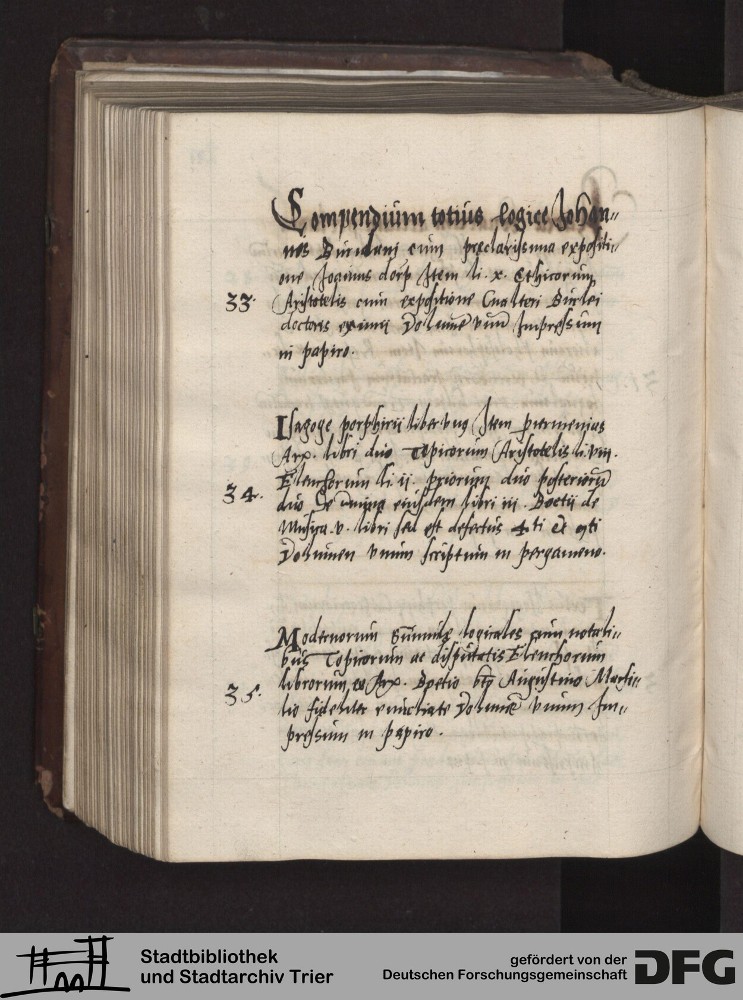 Compendium totius logice Johan„
nis Buridani cum preclarissima expositi„
one Joannis dorp Item li. x. Ethicorum
33. Aristotelis cum expositione Gualteri Burlei
doctoris eximii Volumē vnū Impressum
in papiro.
Isagoge porphirii liber vnus Item periermenias
Arp. libri duo Topicorum Aristotelis li. viii.
Elenchorum li ii. priorum duo posteriorū
34. duo De eiusdem libri iii. Boetii de
Musica v. libri sed est defectus 4ti et 5ti
Volumen vnum scriptum in pergameno.
Modernorum Summule logicales cum notabi„
bus Topicorum ac disputatis Elenchorum
35. librorum, ex Arp. Boetio Augustino Marsi„
lio fideliter Volumē vnum Im„
pressum in papiro.
Stadtbibliothek
und Stadtarchiv Trier
gefördert von der
Deutschen Forschungsgemeinschaft
DFG